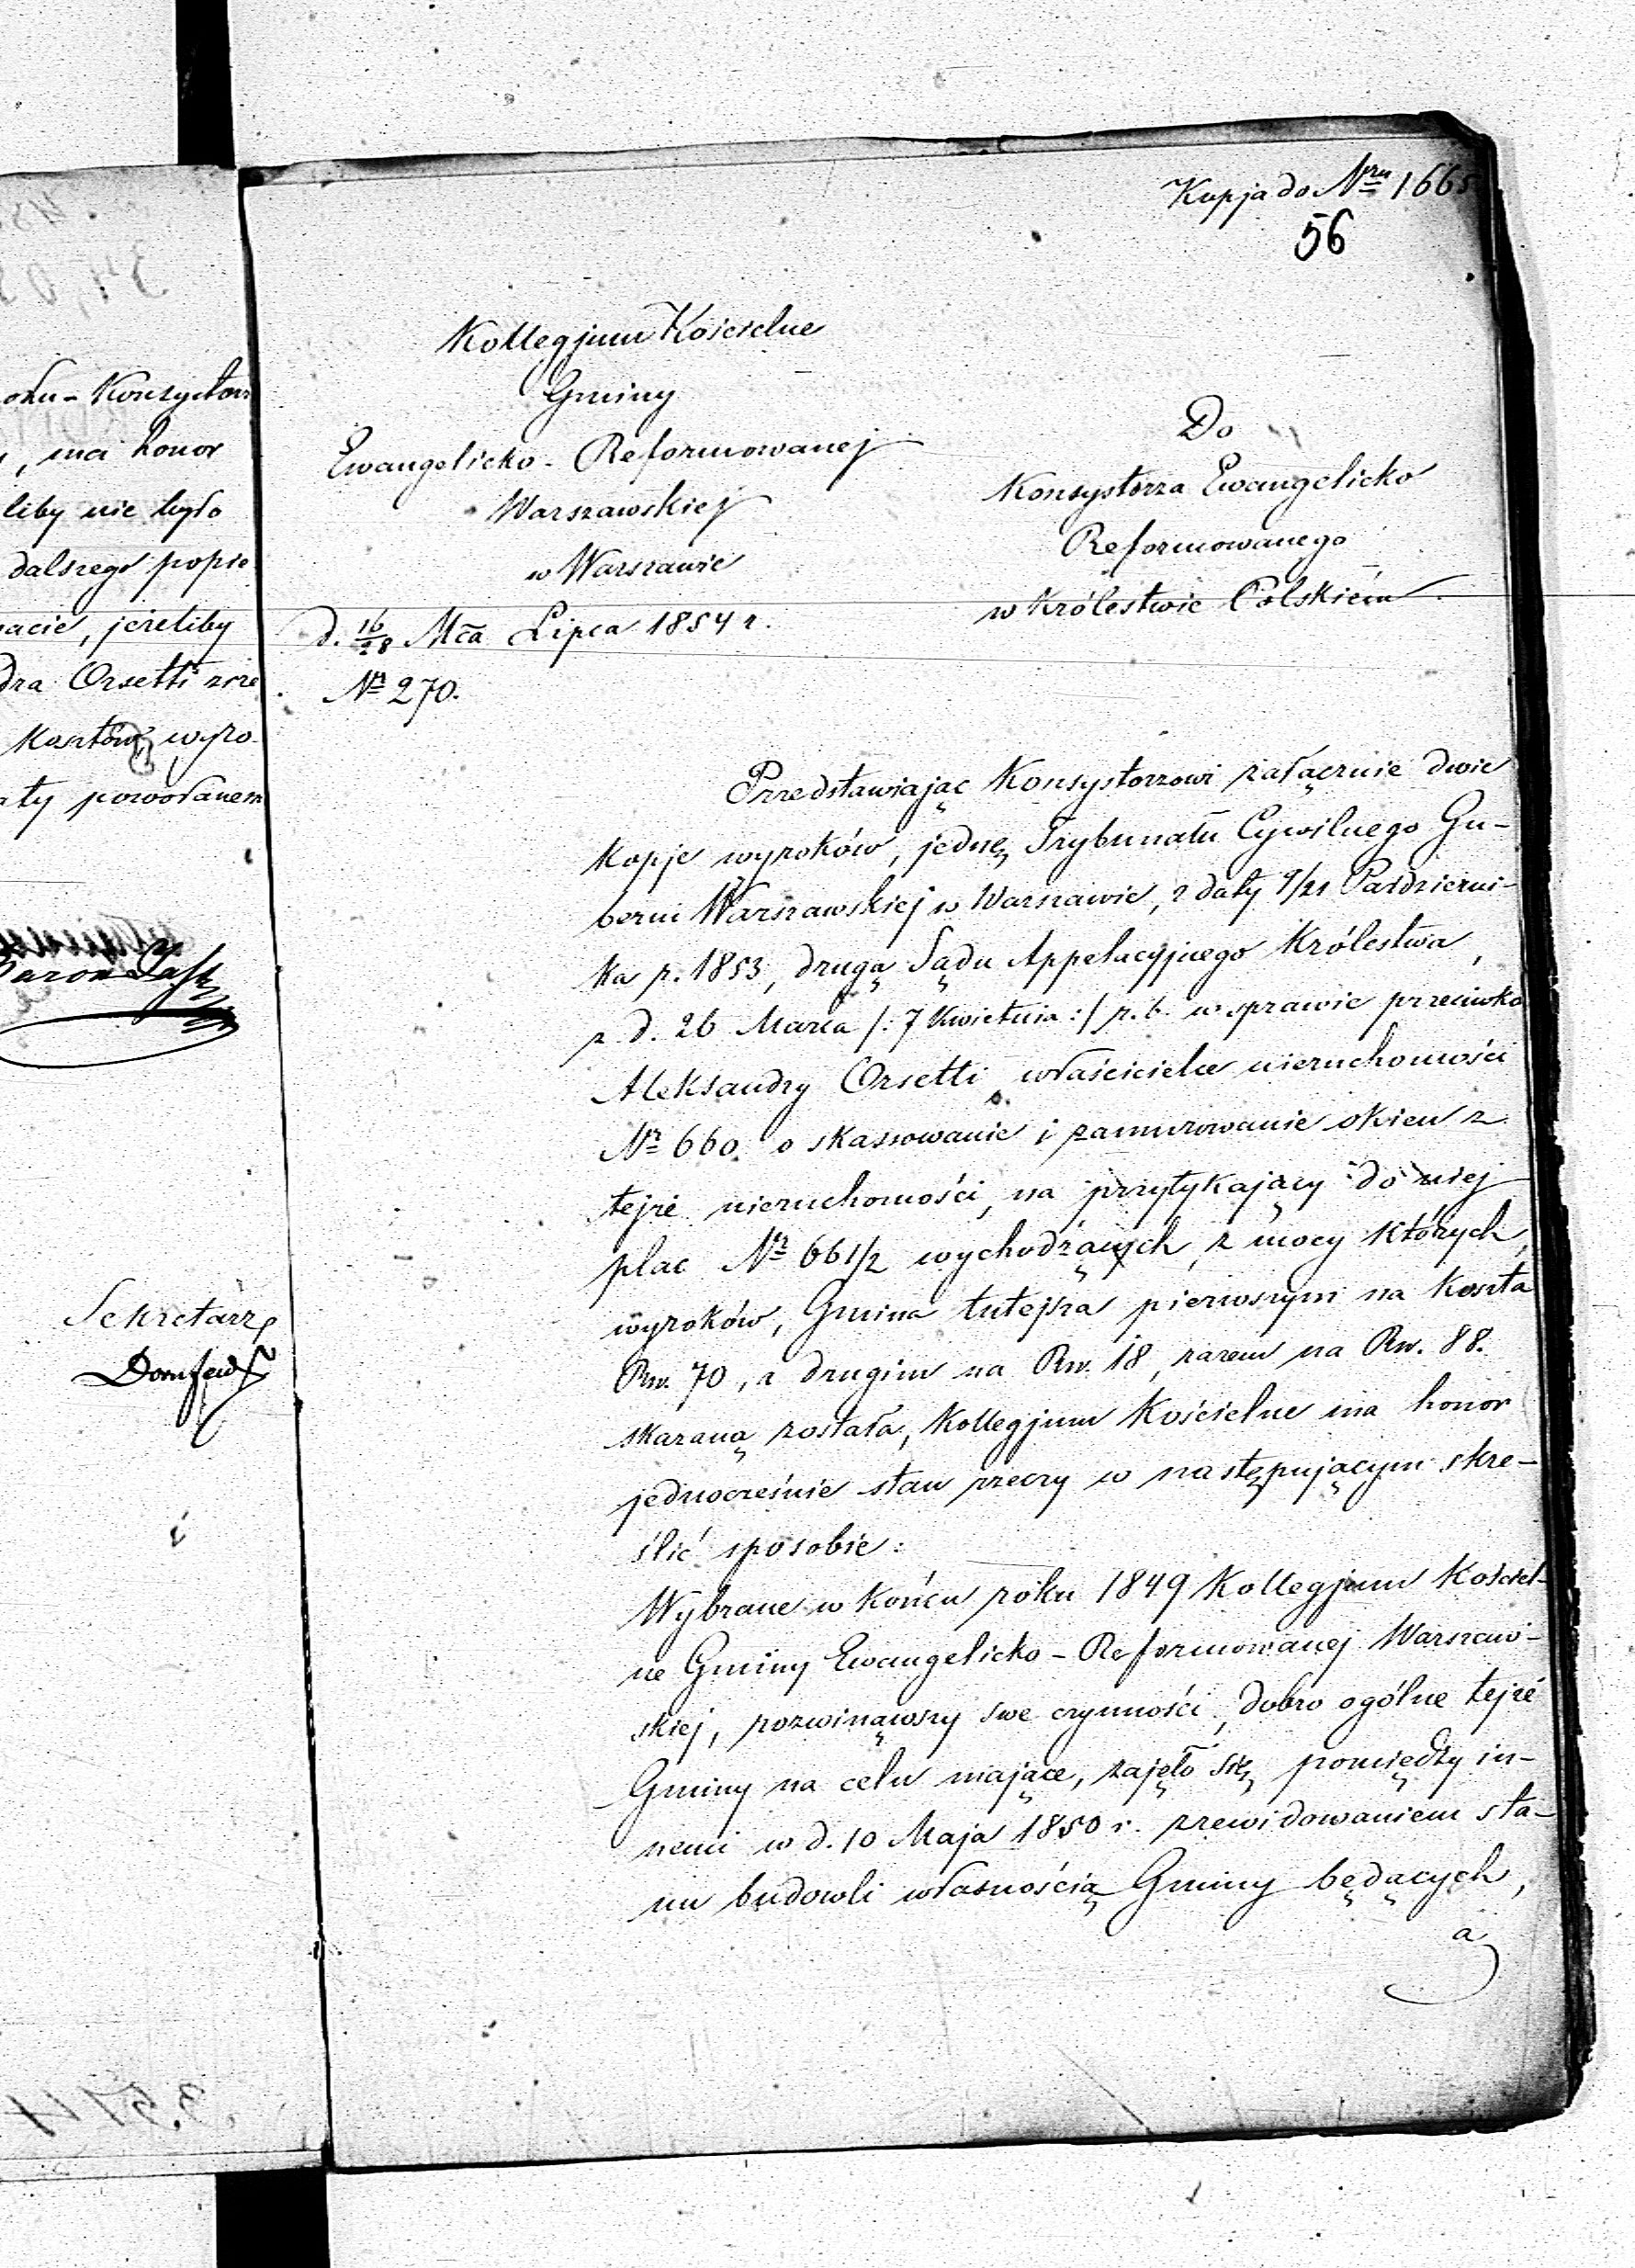 oku - Konsystorz
, ma honor
liby nie było
dalszego popie
acie, jeżeliby
dra Orsetti zrze
kosztów, wyro
aty powołanem
Sekretarz
Kopja do Nru 1665
56
Kollegjum Kościelne
Gminy
Ewangelicko - Reformowanej
Warszawskiej
w Warszawie
d. 16/28 Mca Lipca 1854 r.
Nr 270.
Do
Konsystorza Ewangelicko
Reformowanego
w Królestwie Polskiém
Przedstawiając Konsystorzowi załącznie dwie
kopje wyroków, jednę Trybunału Cywilnego Gu-
berni Warszawskiej w Warszawie, z daty 9/21 Październi-
ka r. 1853, drugą Sądu Appelacyjnego Królestwa,
z d. 26 Marca /: 7 Kwietnia :/ r. b. w sprawie przeciwko
Aleksandry Orsetti właścicielce nieruchomości
Nr 660. o skassowanie i zamurowanie okien z
tejże nieruchomości, na przytykający do niej
plac Nr 661/2 wychodzących, z mocy których
wyroków, Gmina tutejsza pierwszym na koszta
Rs. 70, a drugim na Rs. 18, razem na Rs. 88.
skazaną została, Kollegjum Kościelne ma honor
jednocześnie stan rzeczy w następującym skre-
ślić sposobie:
Wybrane w końcu roku 1849 Kollegjum Kościel-
ne Gminy Ewangelicko - Reformowanej Warszaw-
skiej, rozwinąwszy swe czynności, dobro ogólne tejże
Gminy na celu mające, zajęło się pomiędzy in-
nemi w d. 10 Maja 1850 r. zrewidowaniem sta-
nu budowli własnością Gminy będących,
a